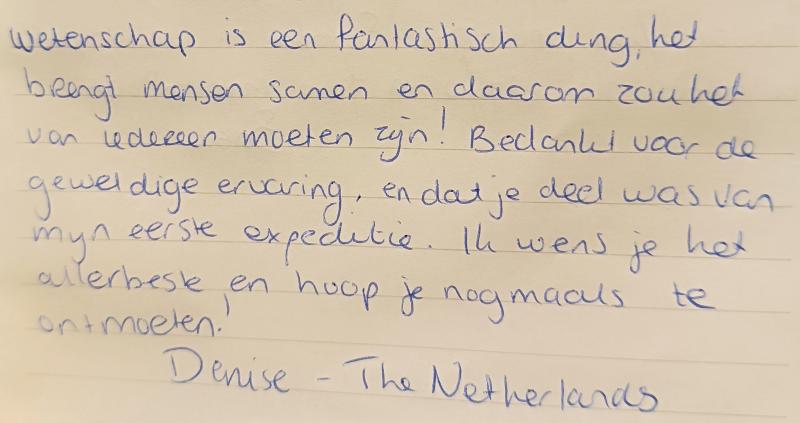 wetenschap is een fantastisch ding, het
brengt mensen samen en daarom zou het
van iedereen moeten zijn! Bedankt voor de
geweldige ervaring, en dat je deel was van
mijn eerste expeditie. Ik wens je het
allerbeste en hoop je nogmaals te
ontmoeten!
Denise - The Netherlands